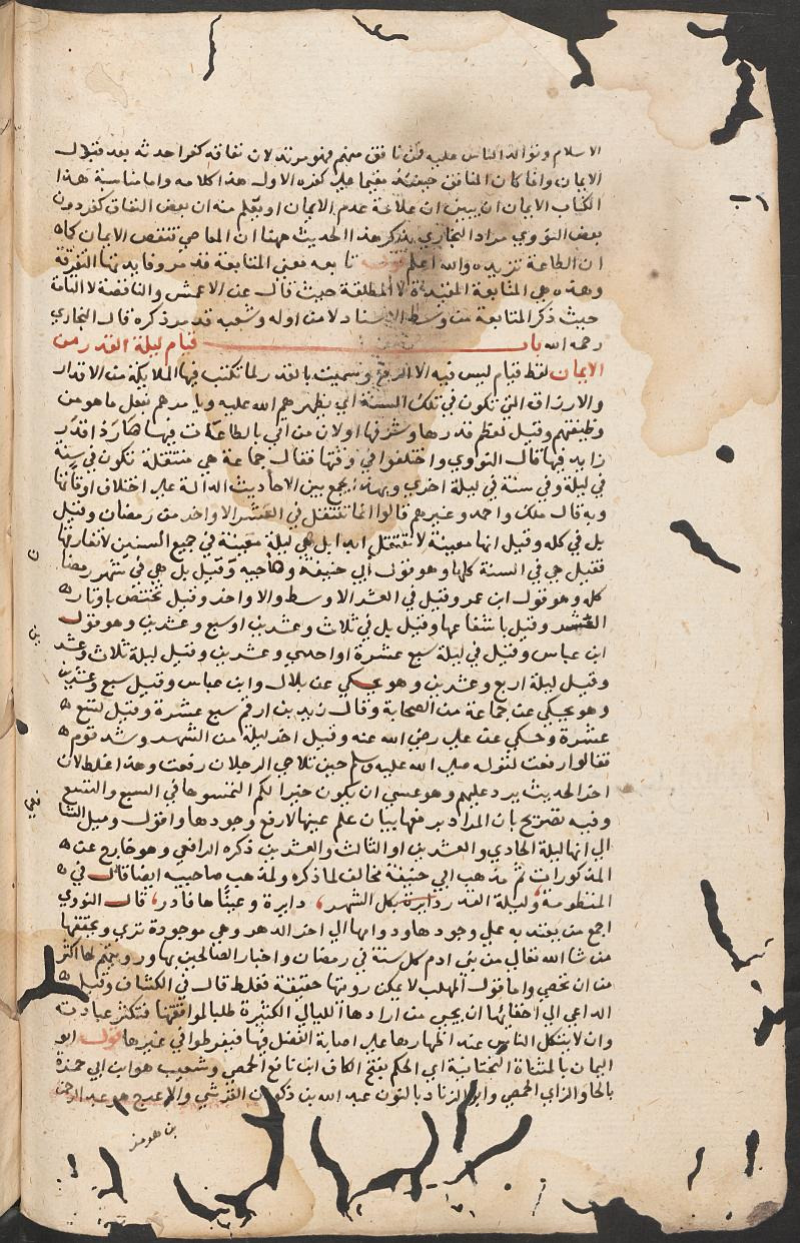 الاسلام وتوالد الناس عليه فمن نافق منهم فهو مرتد لان نفاقه كفر احدثه بعد قبول
الايمان وانما كان المنافق حينئذ مقيما على كفره الاول هذا كلامه واما مناسبة هذا
الكتاب الايمان ان يبين ان علامة عدم الايمان او يعلم منه ان بعض النفاق كفر دون
بعض النووي مراد البخاري بذكر هذا الحديث ههنا ان المعاصي تنقص الايمان كما ه
ان الطاعة تزيده والله اعلم قوله تابعه فمعنى المتابعة قد مر وفايدتها التفرقة
وهذه هي المتابعة المقيدة لا المطلقة حيث قال عن الاعمش والناقصة لا التامة
حيث ذكر المتابعة من وسط الاسناد لا من اوله وشعبه قد مر ذكره قال البخاري
رحمه الله باب قيام ليلة القدر من
الايمان لفظ قيام ليس فيه الا الرفع وسميت بالقدر لما تكتب فيها الملايكة من الاقدار
والارزاق التي تكون في تلك السنة اي يظهرهم الله عليه ويامرهم بفعل ما هو من
وظيفتهم وقيل لعظم قدرها وشرفها اولان من اتي بالطاعات فيها صار ذا قدر
زايد فيها قال النووي واختلفوا في وقتها فقال جماعة هي منتقلة تكون في سنة
في ليلة وفي سنة في ليلة اخرى وبهذا يجمع بين الاحاديث الدالة على اختلاف اوقاتها
وبه قال ملك واحمد وغيرهم قالوا انما تنتقل في العشر الاواخر من رمضان وقيل
بل في كله وقيل انها معينة لا تنتقل ابدا بل هي ليلة معينة في جميع السنين لا تفارقها
فقيل هي في السنة كلها وهو قول ابي حنيفة وصاحبيه وقيل بل هي في شهر رمضا
ن
كله وهو قول ابن عمر وقيل في العشر الاوسط والاواخر وقيل تختص باوتار ه
العشر وقيل باشفاعها وقيل بل في ثلاث وعشرين او سبع وعشرين وهو قول
ابن عباس وقيل في ليلة سبع عشرة او احدى وعشرين وقيل ليلة ثلاث وعشر
ين
وقيل ليلة اربع وعشرين وهو محكي عن بلال وابن عباس وقيل سبع وعشرين
وهو يحكي عن جماعة من الصحابة وقال زيد بن ارقم سبع عشرة وقيل تسع ه
عشرة وحكي عن علي رضي الله عنه وقيل اخر ليلة من الشهر وشد قوم ه
فقالوا رفعت لقوله صلى الله عليه وسلم حين تلاحي الرجلان رفعت وهذا غلط لان
اخر الحديث يرد عليهم وهو عسي ان يكون خيرا لكم التمسوها في السبع والتسع
وفيه تصريح بان المراد برفعها بيان علم عينها لا رفع وجودها واقول وميل الشا
فعي
الي انها ليلة الحادي والعشرين او الثالث والعشرين ذكره الرافعي وهو خارج عن ه
المذكورات ثم مذهب ابي حنيفة مخالف لما ذكره ولمذهب صاحبيه ايضا قال في ه
المنظومة وليلة القدر دايرة بكل الشهر، دايرة وعيناها فادر، قال النووي
اجمع من يعتد به على وجودها ودوامها الي اخر الدهر وهي موجودة تري ويحققها
من شا الله تعالي من بني ادم كل سنة في رمضان واخبار الصالحين بها ورويتهم لها اكثر
من ان تحصي واما قول المهلب لا يمكن رويتها حقيقة فغلط قال في الكشاف وقيل ه
الداعي الي اخفايها ان يحيي من ارادها الليالي الكثيرة طلبا لموافقتها فتكثر عبادته
وان لا يتكل الناس عند اظهارها على اصابة الفضل فيها فيفرطوا في غيرها قوله ابو
اليمان بالمثناة التحتانية اي الحكم بفتح الكاف ابن نافع الحمصي وشعيب هو ابن ابي حمزة
بالحا والزاي الحمصي وابو الزناد بالنون عبد الله بن ذكوان القرشي والاعرج هو عبد الرحمن
بن هرمز